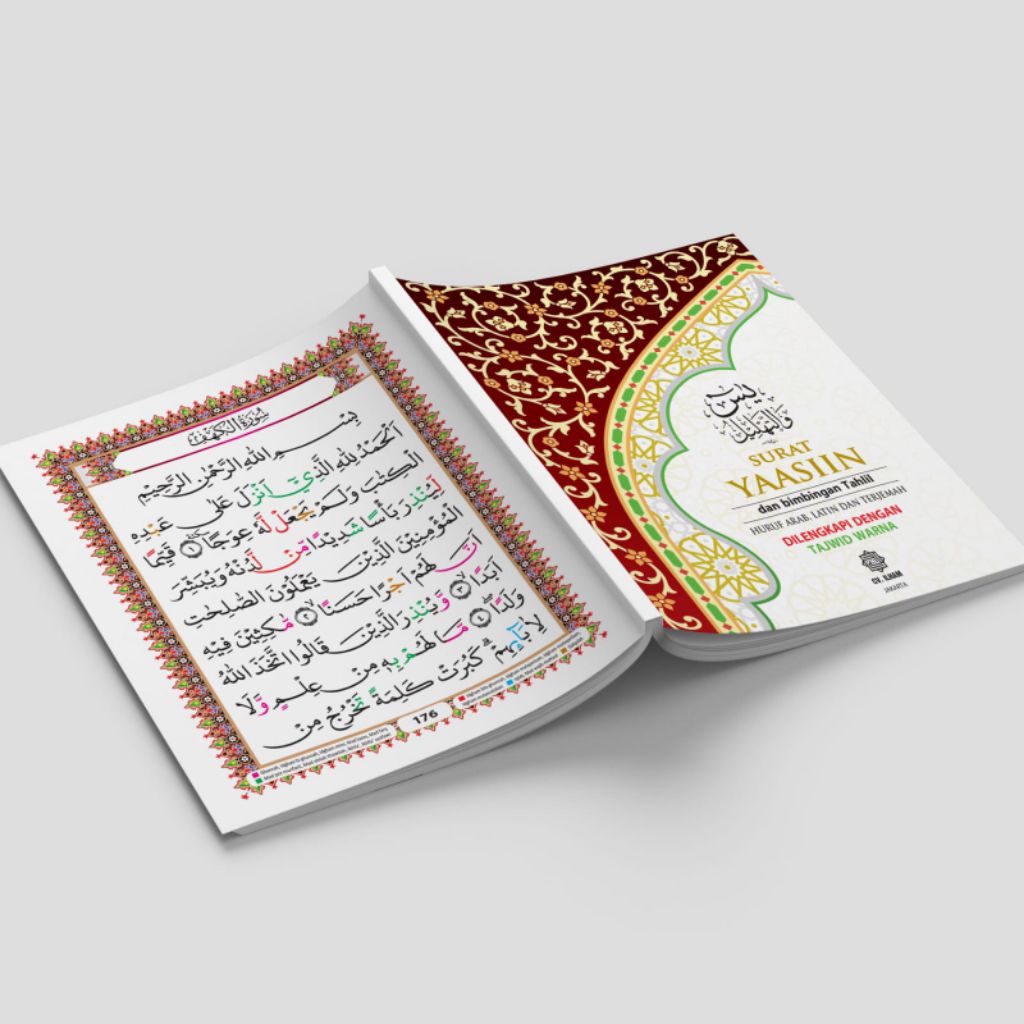 سُوْرَةُ الْكَهْفِ
بِسْمِ اللهِ الرَّحْمٰنِ الرَّحِيْمِ
اَلْحَمْدُ لِلّٰهِ الَّذِيْٓ اَنْزَلَ عَلٰى عَبْدِهِ
الْكِتٰبَ وَلَمْ يَجْعَلْ لَّهٗ عِوَجًا ۜ ١ قَيِّمًا
لِّيُنْذِرَ بَأْسًا شَدِيْدًا مِّنْ لَّدُنْهُ وَيُبَشِّرَ
الْمُؤْمِنِيْنَ الَّذِيْنَ يَعْمَلُوْنَ الصّٰلِحٰتِ
اَنَّ لَهُمْ اَجْرًا حَسَنًا ٢ مّٰكِثِيْنَ فِيْهِ
اَبَدًا ٣ وَّيُنْذِرَ الَّذِيْنَ قَالُوا اتَّخَذَ اللهُ
وَلَدًا ٤ مَا لَهُمْ بِهٖ مِنْ عِلْمٍ وَّلَا
لِاٰبَآئِهِمْ ۗ كَبُرَتْ كَلِمَةً تَخْرُجُ مِنْ
176
يٰسٓ
وَالتَّهْلِيْلُ
SURAT
YAASIIN
dan bimbingan Tahlil
HURUF ARAB, LATIN DAN TERJEMAH
DILENGKAPI DENGAN
TAJWID WARNA
CV. ILHAM
JAKARTA